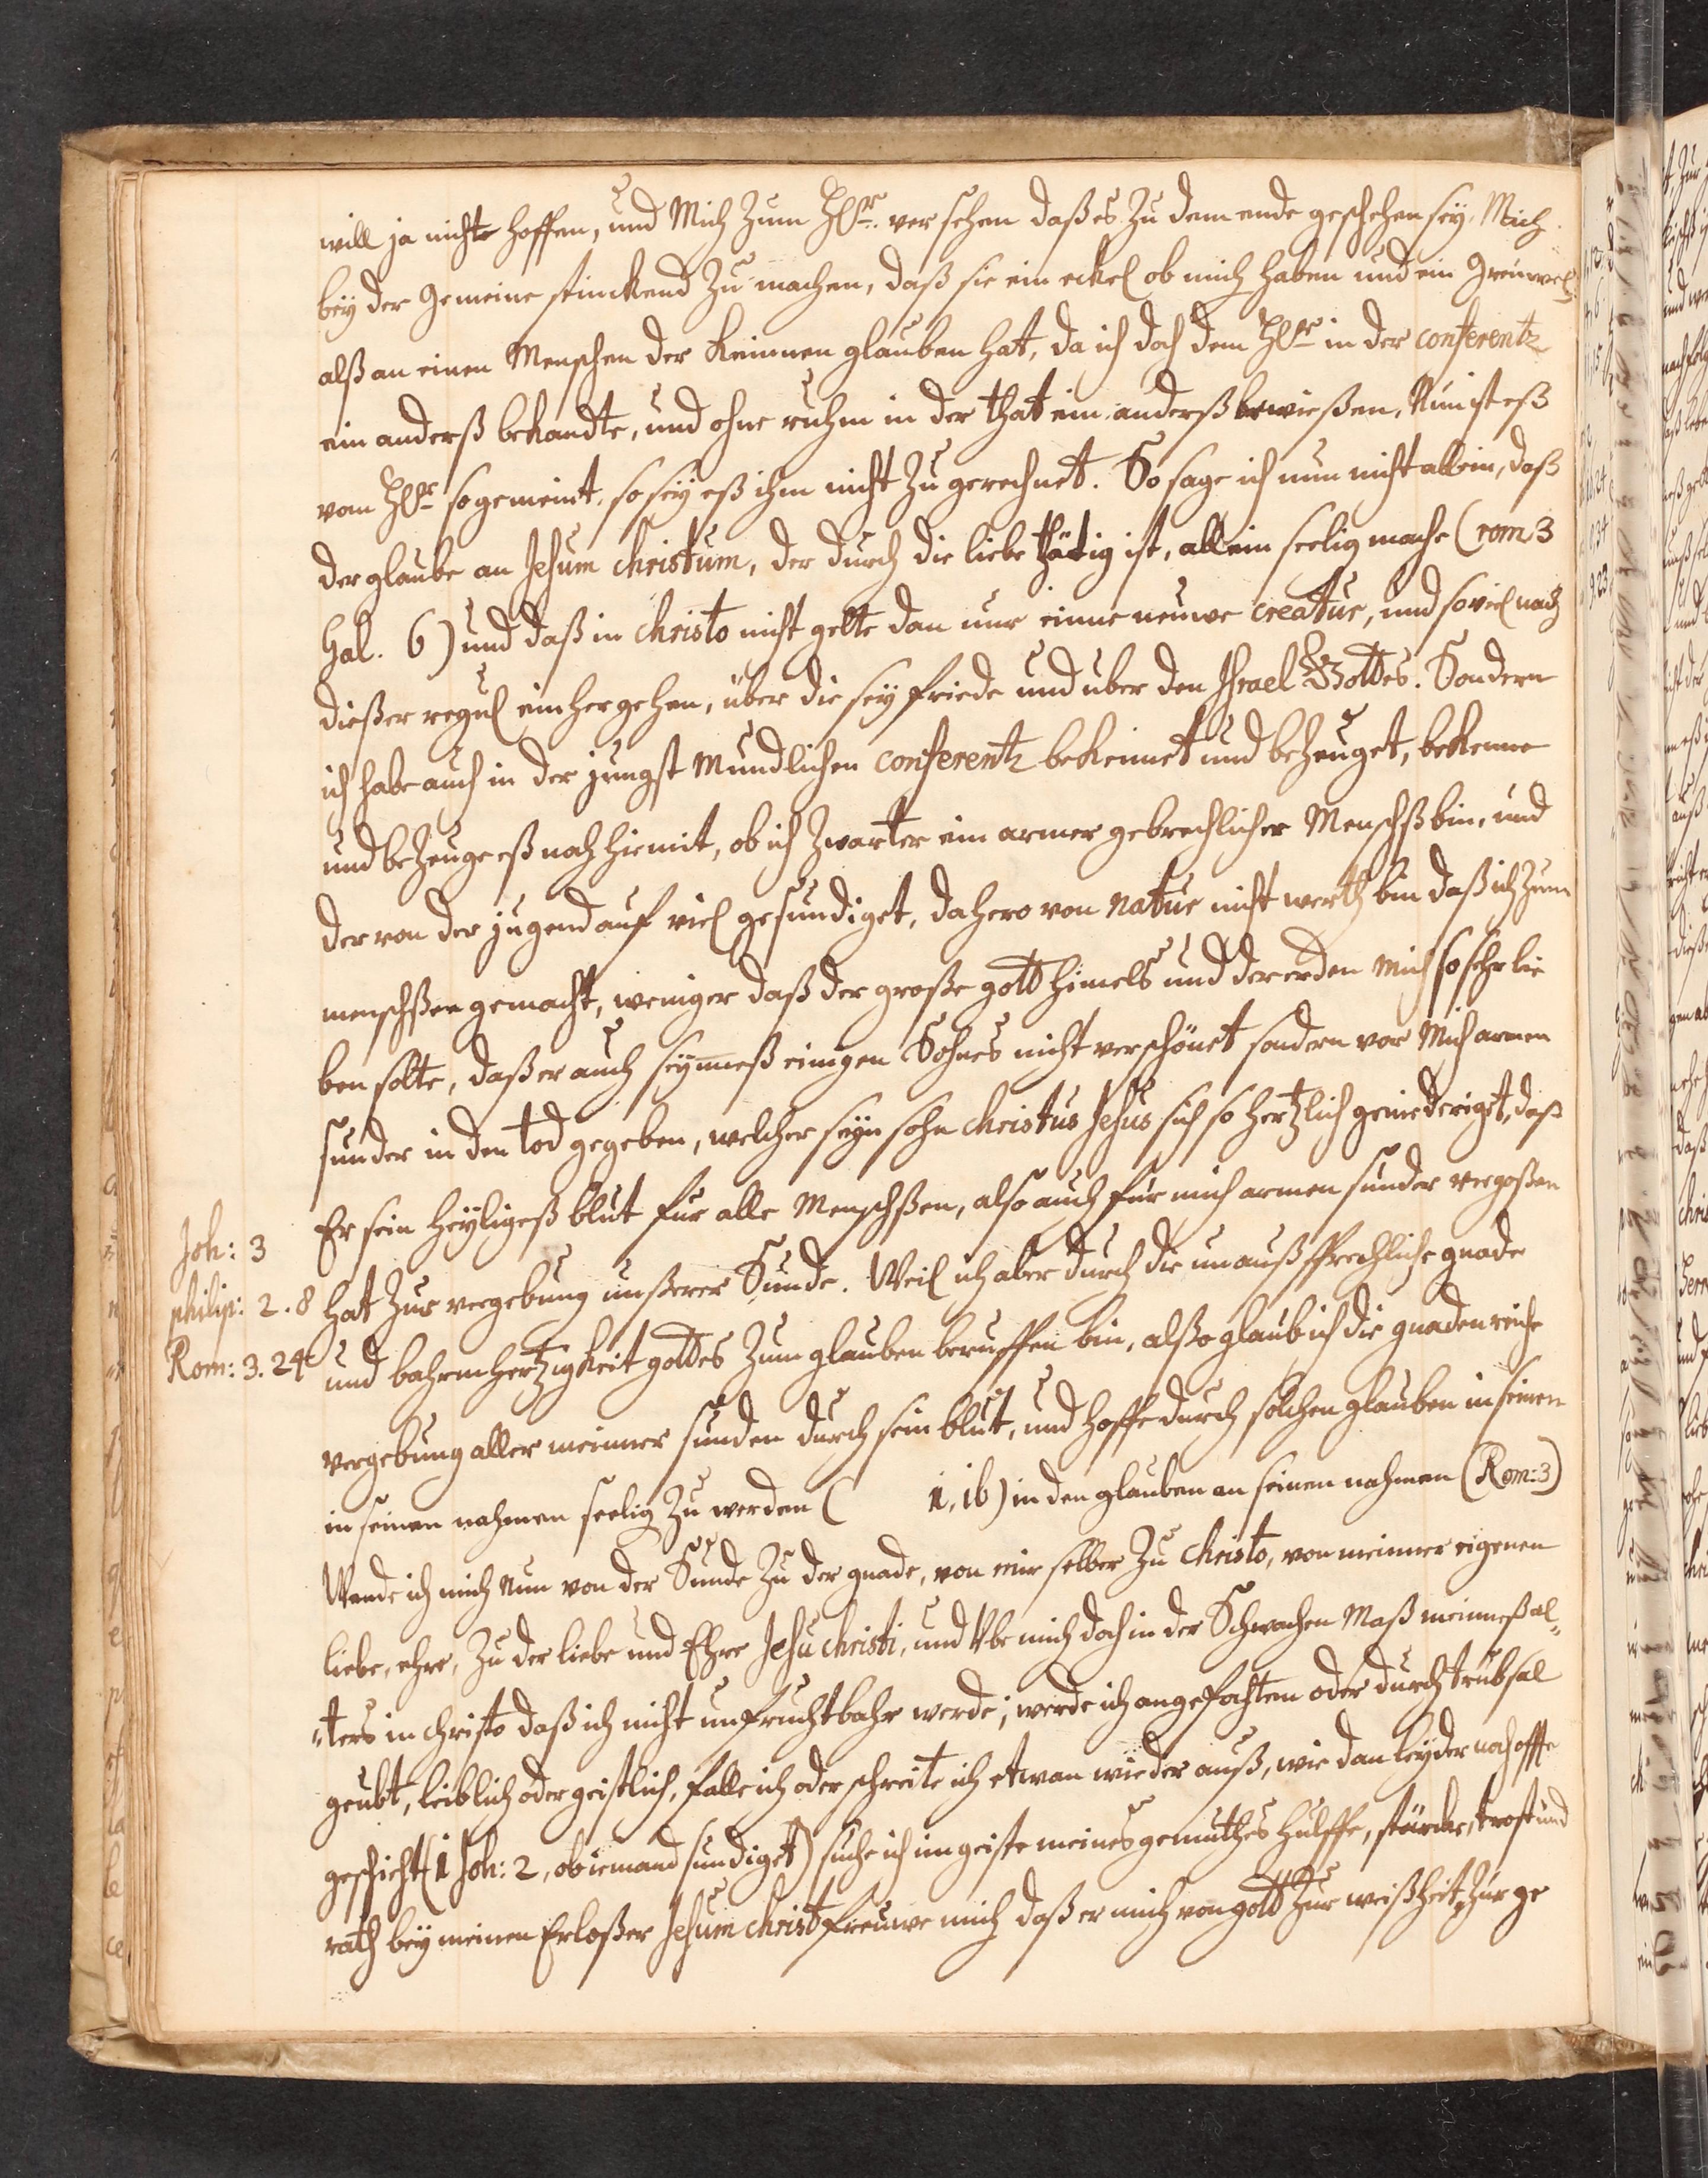 will ja nichts hoffen, und Mich Zum Hr. versehen daß es Zu dem ende geschehen sey, Mich
bey der Gemeine stinckend Zu machen, daß sie ein eckel ob mich haben und ein Greuwel,
alß an einen Menschen der Keinnen glauben hat, da ich doch dem Hr. in der conferentz
ein anderß bekandte, und ohne ruhm in der that ein anderß bewießen, Nun ist eß
vom Hr. so gemeint, so sey eß ihm nicht Zu gerechnet. So sage ich nun nicht allein, daß
der glaube an Jesum christum, der durch die liebe thätig ist, allein seelig mache (rom: 3
Gal. 6) und daß in christo nicht gelte dan nur einne neuwe creatur, und so viel nach
dießer regul einher gehen, über die sey friede und uber den Israel Gottes. Sondern
ich habe auch in der jungst Mundlichen conferentz bekennet und beZeuget, bekenne
und beZeuge eß noch hiemit, ob ich Zwarter ein armer gebrechlicher Menschß bin, und
der von der jugend auf viel gesundiget, dahero von natur nicht werth bin daß ich Zum
menschßen gemacht, weniger daß der große gott himels und der erden mich so sehr lie
ben solte, daß er auch seynneß einigen Sohnes nicht verschönet sondern vor Mich armen
sunder in den tod gegeben, welcher seyn sohn christus Jesus sich so hertzlich geniederiget, daß
Er sein heyligeß blut fur alle Menschßen, also auch fur mich armen sunder vergoßen
Joh: 3
philip: 2. 8 hat Zur vergebung unßerer Sunde. Weil ich aber durch die unaußsprechliche gnade
Rom: 3. 24 und bahrmhertzigkeit gottes Zum glauben beruffen bin, alßo glaub ich die gnadenreiche
vergebung aller meinner sunden durch sein blut, und hoffe durch solchen glauben in seinen
in seinen nahmen seelig Zu werden ( 1, 16) in den glauben an seinen nahmen (Rom: 3)
Wende ich mich nun von der Sunde Zu der gnade, von mir selber Zu christo, von meinner eigenen
liebe, ehre, Zu der liebe und Ehre Jesu christi, und Vbe mich doch in der Schwachen Maß meinneß al„
„ters in christo daß ich nicht unfruchtbahr werde; werde ich angefochten oder durch trubsal
geubt, leiblich oder geistlich, falle ich oder schreite ich etwan wieder auß, wie dan leyder noch offte
geschicht (1 Joh: 2, ob iemand sundiget) suche ich im geiste meines gemuthes hulffe, stärcke, trost und
rath bey meinen Erloßer Jesum christ freuwe mich daß er mich von gott Zur weißheit, Zur ge